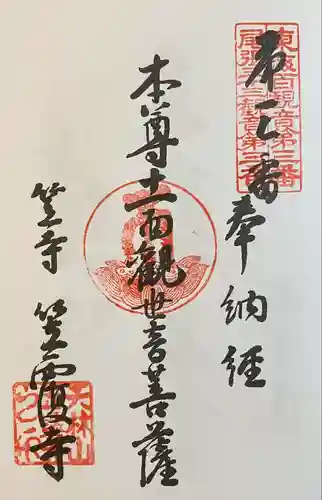 東海百観音第三番
尾張三十三観音第三番
第三番
奉納経
本尊十一面観世音菩薩
笠寺 笠覆寺